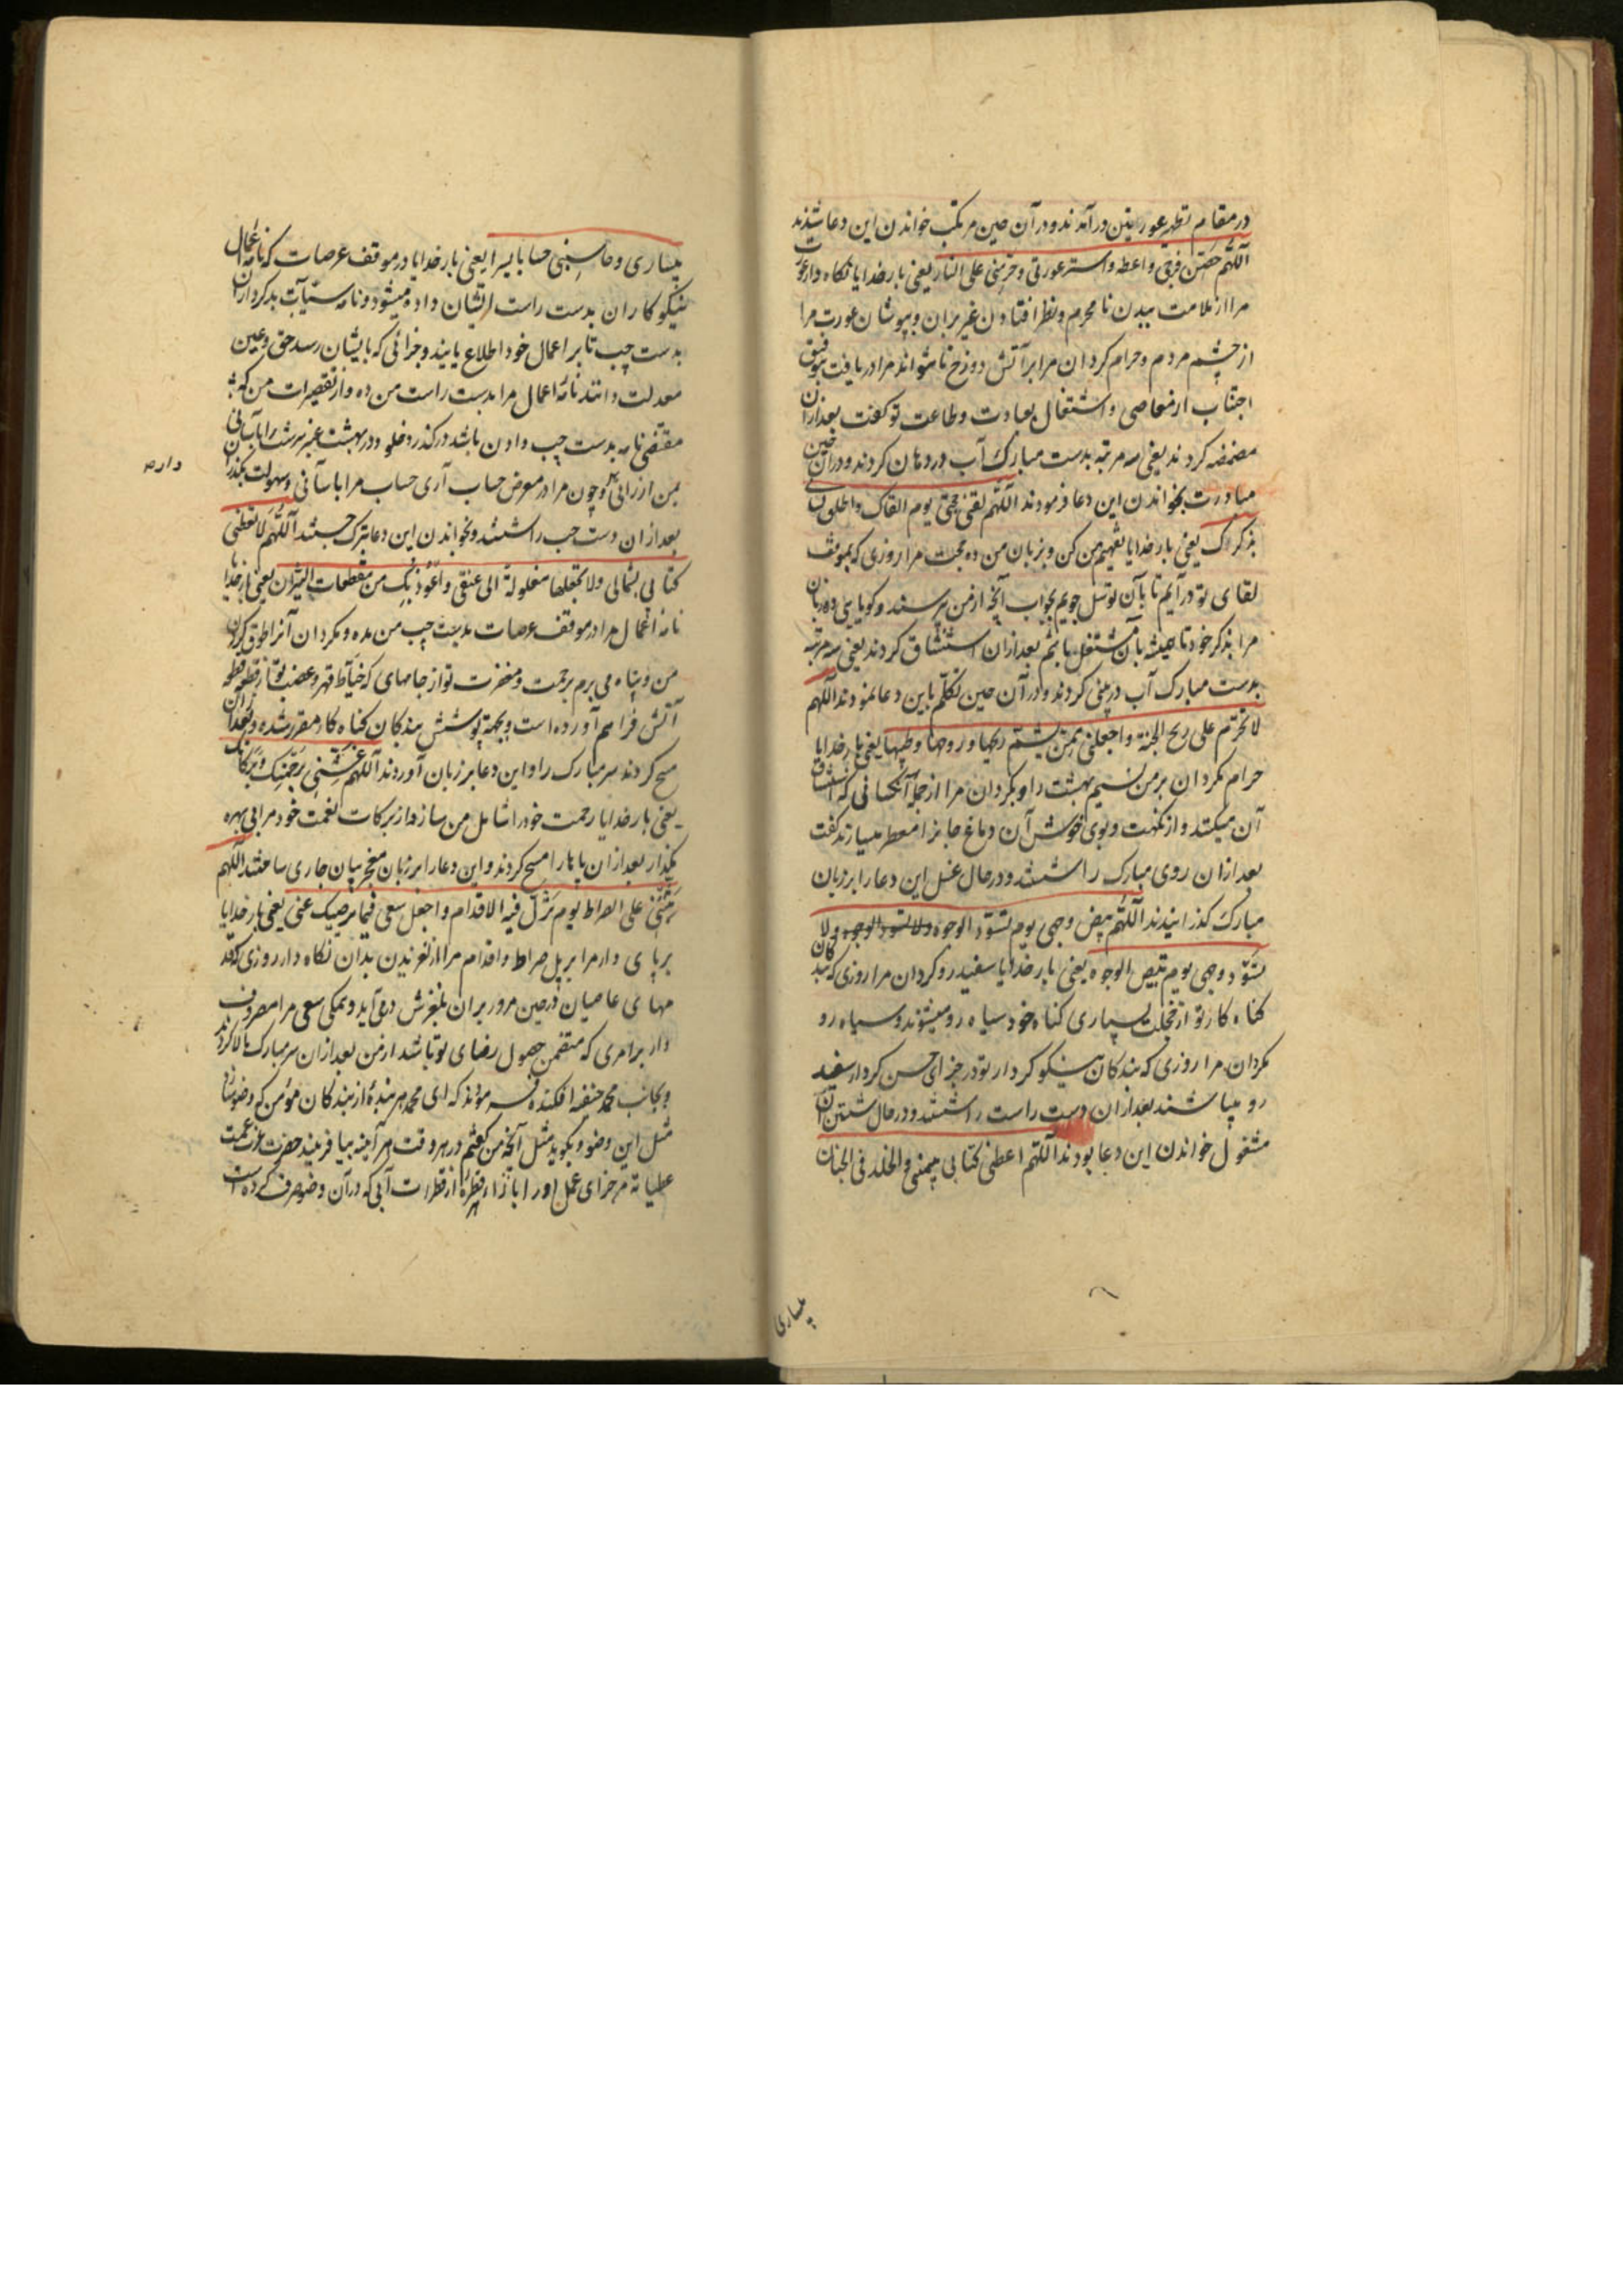 در مقام تطهیر عورتین درآمدند و در آن حین مرتکب خواندن این دعا شدند
اللّهم حصّن فرجی واعفه واستر عورتی وحرّمنی علی النار یعنی بار خدایا نگاه دار
مرا از ملامت بیدن نامحرم و نظر افتادن غیر بران و بپوشان عورت مرا
از چشم مردم و حرام کردان مرا بر آتش دوزخ تا نتواند مرا دریافت بتوفیق
اجتناب از معاصی و اشتغال بعبادت و طاعت تو کفت بعد ازان
مضمضه کردند یعنی سه مرتبه بدست مبارک آب در دهان کردند و در آن حین
مبادرت بخواندن این دعا فرمودند اللّهم لقنی حجتی یوم القاک واطلق لسانی
بذکرک یعنی بار خدایا تفهیم من کن و بزبان من ده حجت مرا روزی که بموقف
لقای تو درآیم تا بآن توسل جویم بجواب آنچه از من پرسند و کویایی ده زبان
مرا بذکر خود تا همیشه بآن مشتغل باشم بعد ازان استنشاق کردند یعنی سه مرتبه
بدست مبارک آب در بینی کردند و در آن حین تکلّم باین دعا نمودند اللّهم
لا تحرّم علی ریح الجنة واجعلنی ممّن یشتم ریحها وروحها وطیبها یعنی بار خدایا
حرام مکردان بر من نسیم بهشت را و بکردان مرا از جمله آنکسانی که استنشاق
آن میکنند و از نکهت و بوی خوش آن دماغ جانرا معطر میسازند کفت
بعد ازان روی مبارک را شستند و در حال غسل این دعا را بر زبان
مبارک کذرانیدند اللّهم بیّض وجهی یوم تسوّد الوجوه ولا تسود الوجوه ولا
تسوّد وجهی یوم تبیض الوجوه یعنی بار خدایا سفید رو کردان مرا روزی که بندکان
کناه کار تو از خجلت بسیاری کناه خود سیاه رو میشوند و سیاه رو
مکردان مرا روزی که بندکان نیکو کردار تو در جزای حسن کردار سفید
رو میباشند بعد ازان دست راست را شستند و در حال شستن آن
مشغول خواندن این دعا بودند اللّهم اعطنی کتابی بیمینی والخلد فی الجنان
بیساری
بیساری وحاسبنی حسابا یسیرا یعنی بار خدایا در موقف عرصات که نامه اعمال
نیکو کاران بدست راست ایشان داده میشود و نامه سیّآت بدکرداران
بدست چپ تا بر اعمال خود اطلاع یابند و جزائی که بایشان رسد حق و عین
معدلت دانند نامه اعمال مرا بدست راست من ده و از تقصیرات من که
مقتضی نامه بدست چپ دادن باشد درکذر و خلود در بهشت عنبر سرشت را بآسانی
بمن ارزانی و چون مرا در معرض حساب آری حساب مرا بآسانی و سهولت بکذران
دار م
بعد ازان دست چپ را شستند و بخواندن این دعا تبرک جستند اللّهم لا تعطنی
کتابی بشمالی ولا تجعلها مغلولة الی عنقی واعوذ بک من مقطعات النیران یعنی بار خدایا
نامه اعمال مرا در موقف عرصات بدست چپ من مده و مکردان آنرا طوق کردن
من و پناه می برم برحمت و مغفرت تو از جامهای که خیّاط قهر و غضب تو از قطعه قطعه
آتش فراهم آورده است و بجهة پوشش بندکان کناه کار مقرر شده و بعد ازان
مسح کردند سر مبارک را و این دعا بر زبان آوردند اللّهم غشّنی برحمتک وبرکاتک
یعنی بار خدایا رحمت خود را شامل من ساز و از برکات نعمت خود مرا بی بهره
مکذار بعد ازان پاها را مسح کردند و این دعا را بر زبان معجز بیان جاری ساختند اللّهم
ثبّتنی علی الصراط یوم تزلّ فیه الاقدام واجعل سعی فیما یرضیک عنی یعنی بار خدایا
بر پای دار مرا بر پل صراط و اقدام مرا از لغزیدن بدان نکاه دار روزی که قد
مهای عاصیان در حین مرور بران بلغزش در می آید و بمکی سعی مرا مصروف
دار بر امری که متضمن حصول رضای تو باشد از من بعد ازان سر مبارک بالا کردند
و بجانب محمد حنفیه افکنده فرمودند که ای محمد هر بندهٔ از بندکان مؤمن که وضو سازد
مثل این وضو و بکوید مثل آنچه من کفتم در هر وقت هر آینه بیافریند حضرت عزّت عمت
عطیاته مر جزای عمل او را بازاء هر قطرهٔ از قطرات آبی که در آن وضو صرف کرده است